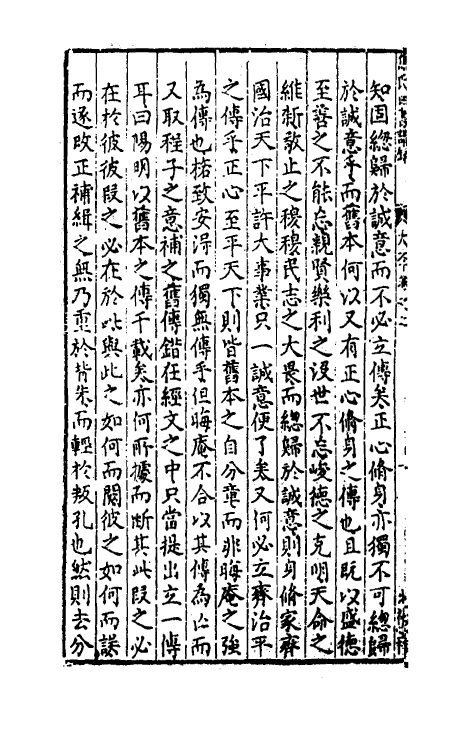 知固緫歸於誠意而不必立傳矣正心脩身亦獨不可緫歸
於誠意乎而舊本何以又有正心脩身之傳也且既以盛德
至善之不能忘親賢樂利之没世不忘峻德之克明天命之
維新敬止之穆穆民志之大畏而緫歸於誠意則身脩家齊
國治天下平許大事業只一誠意便了矣又何必立齊治平
之傳乎正心至平天下則皆舊本之自分章而非晦庵之强
為傳也格致安淂而獨無傳乎但晦庵不合以其傳為亡而
又取程子之意補之舊傳錯在經文之中只當提出立一傳
耳曰陽明以舊本之傳千載矣亦何所據而斷其此段之必
在於彼彼段之必在於此與此之如何而闕彼之如何而誤
而遂改正補緝之無乃重於背朱而輕於叛孔也然則去分